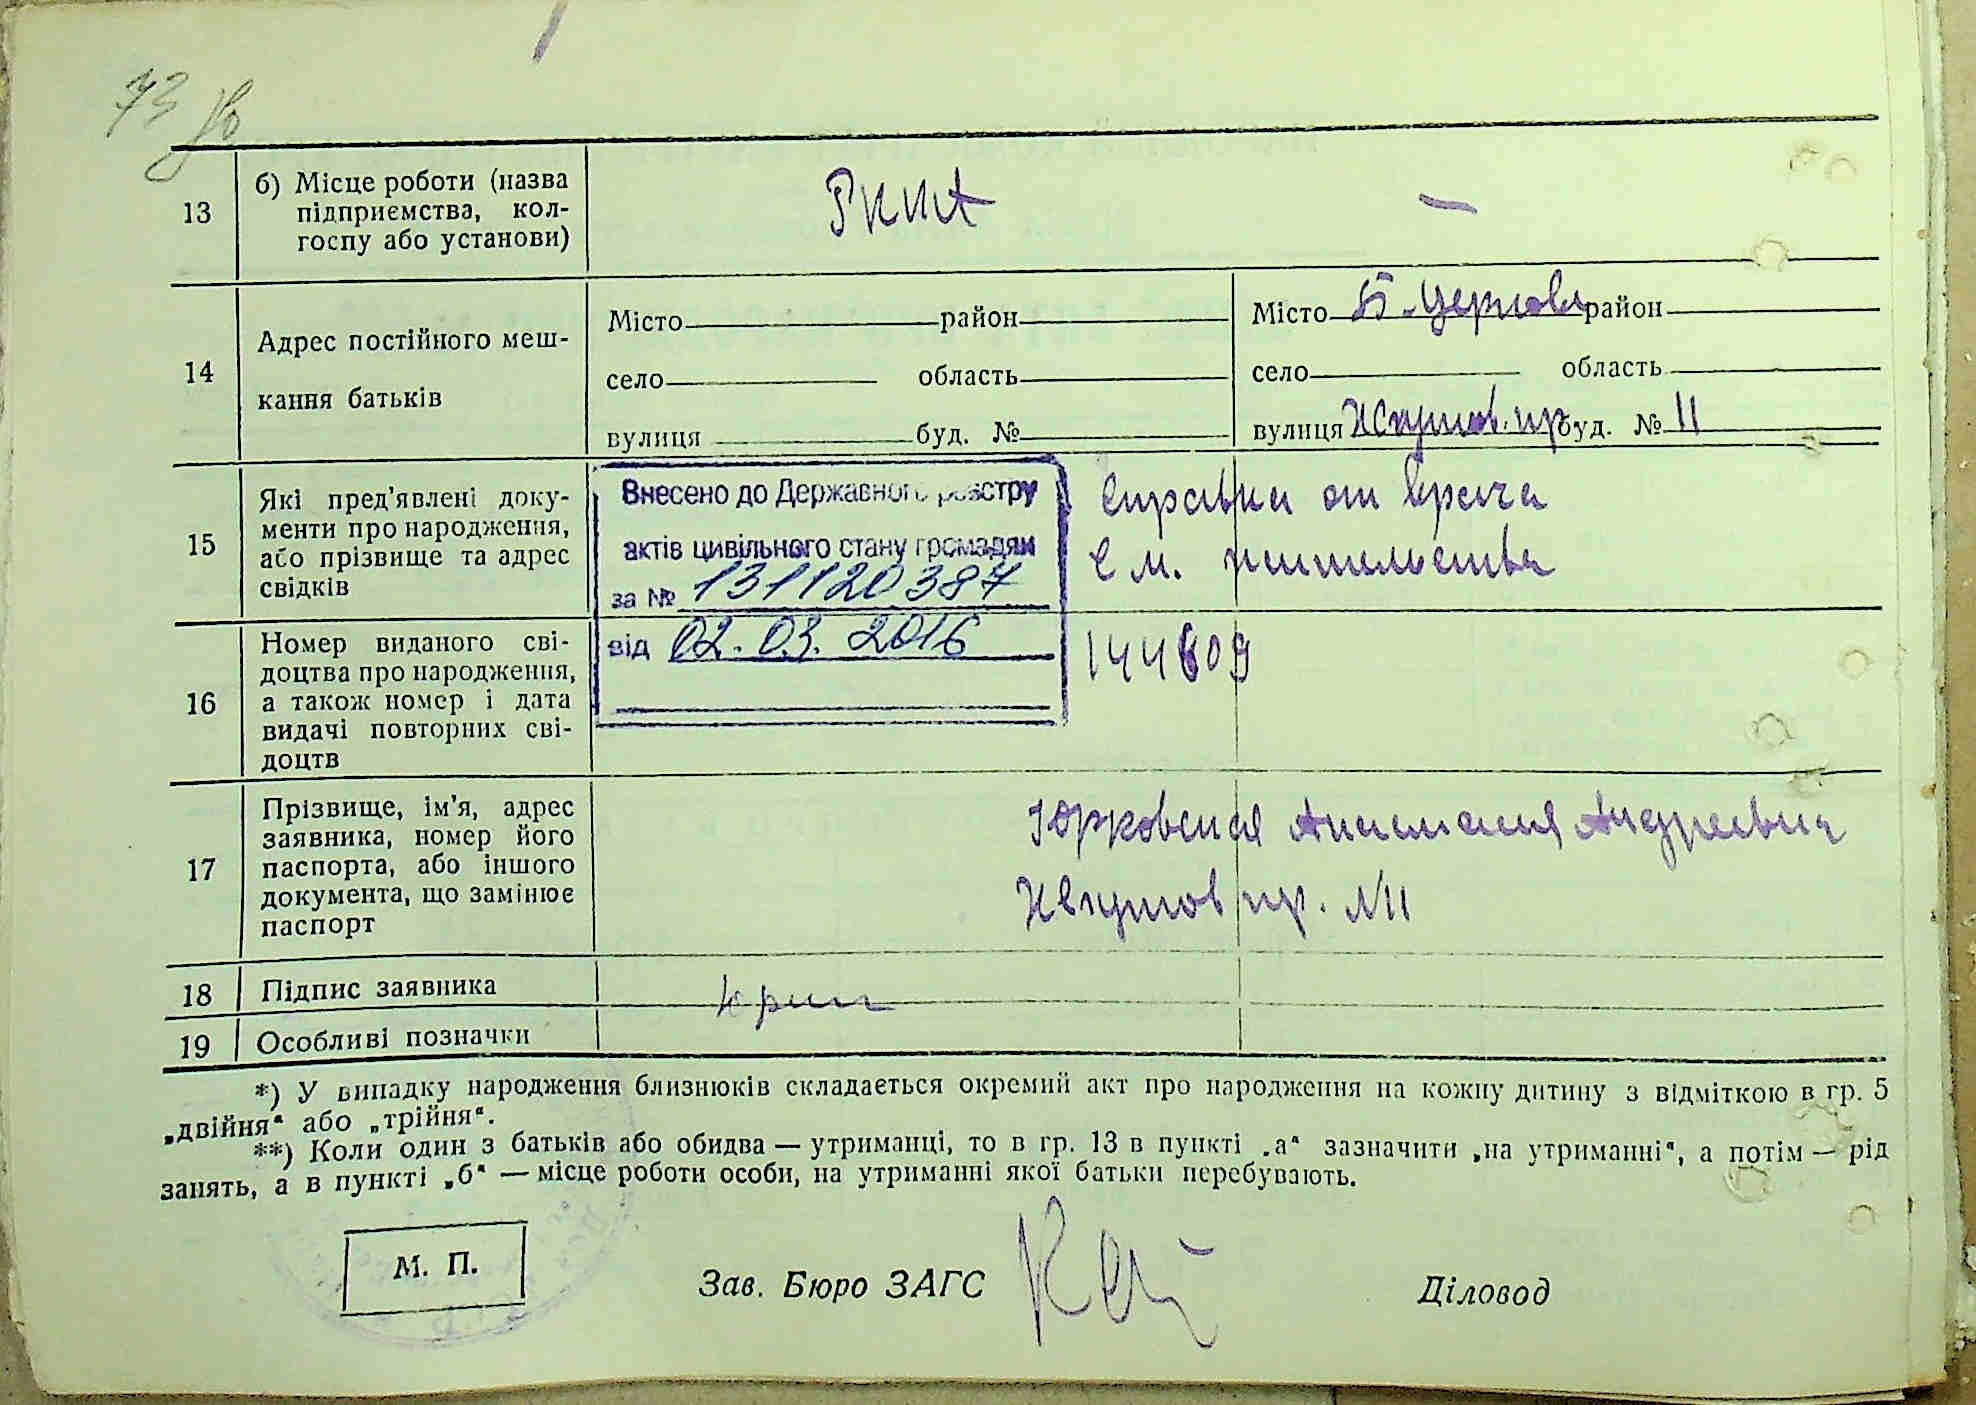 73
13
б) Місце роботи (назва
підприємства, кол-
госпу або установи)
РККА
—
14
Адрес постійного меш-
кання батьків
Місто район
село область
вулиця буд. №
Місто Б-Церковь район
село область
вулиця пр буд. № 11
15
Які пред'явлені доку-
менти про народження,
або прізвище та адрес
свідків
Внесено до Державного реєстру
актів цивільного стану громадян
за № 131120387
від 02.03.2016
Справка от врача
с м. жительства
16
Номер виданого сві-
доцтва про народження,
а також номер і дата
видачі повторних сві-
доцтв
144609
17
Прізвище, ім'я, адрес
заявника, номер його
паспорта, або іншого
документа, що замінює
паспорт
Юрковская Анастасия Андреевна
пр. №11
18
Підпис заявника
19
Особливі позначки
*) У випадку народження близнюків складається окремий акт про народження на кожну дитину з відміткою в гр. 5
„двійня“ або „трійня“.
**) Коли один з батьків або обидва — утриманці, то в гр. 13 в пункті „а“ зазначити „на утриманні“, а потім — рід
занять, а в пункті „б“ — місце роботи особи, на утриманні якої батьки перебувають.
М. П.
Зав. Бюро ЗАГС
Діловод